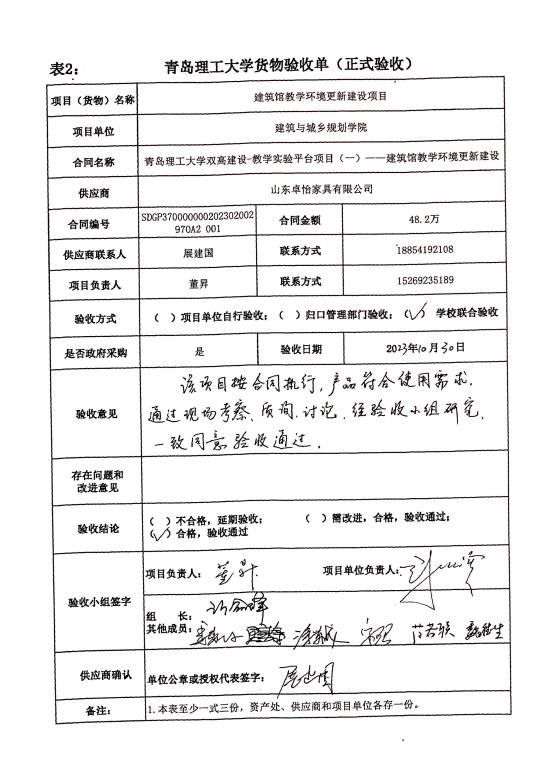 表2：
青岛理工大学货物验收单（正式验收）
项目（货物）名称 建筑馆教学环境更新建设项目
项目单位 建筑与城乡规划学院
合同名称 青岛理工大学双高建设-教学实验平台项目（一）——建筑馆教学环境更新建设
供应商 山东卓怡家具有限公司
合同编号 SDGP370000000202302002
970A2 001 合同金额 48.2万
供应商联系人 展建国 联系方式 18854192108
项目负责人 董昇 联系方式 15269235189
验收方式 （ ）项目单位自行验收；（ ）归口管理部门验收；（√）学校联合验收
是否政府采购 是 验收日期 2023年10月30日
验收意见 该项目按合同执行，产品符合使用需求，
通过现场考察、质询、讨论，经验收小组研究，
一致同意验收通过。
存在问题和
改进意见
验收结论 （ ）不合格，延期验收； （ ）需改进，合格，验收通过；
（√）合格，验收通过
验收小组签字 项目负责人：董昇 项目单位负责人：
组 长：
其他成员：
供应商确认 单位公章或授权代表签字：展建国
备注： 1.本表至少一式三份，资产处、供应商和项目单位各存一份。